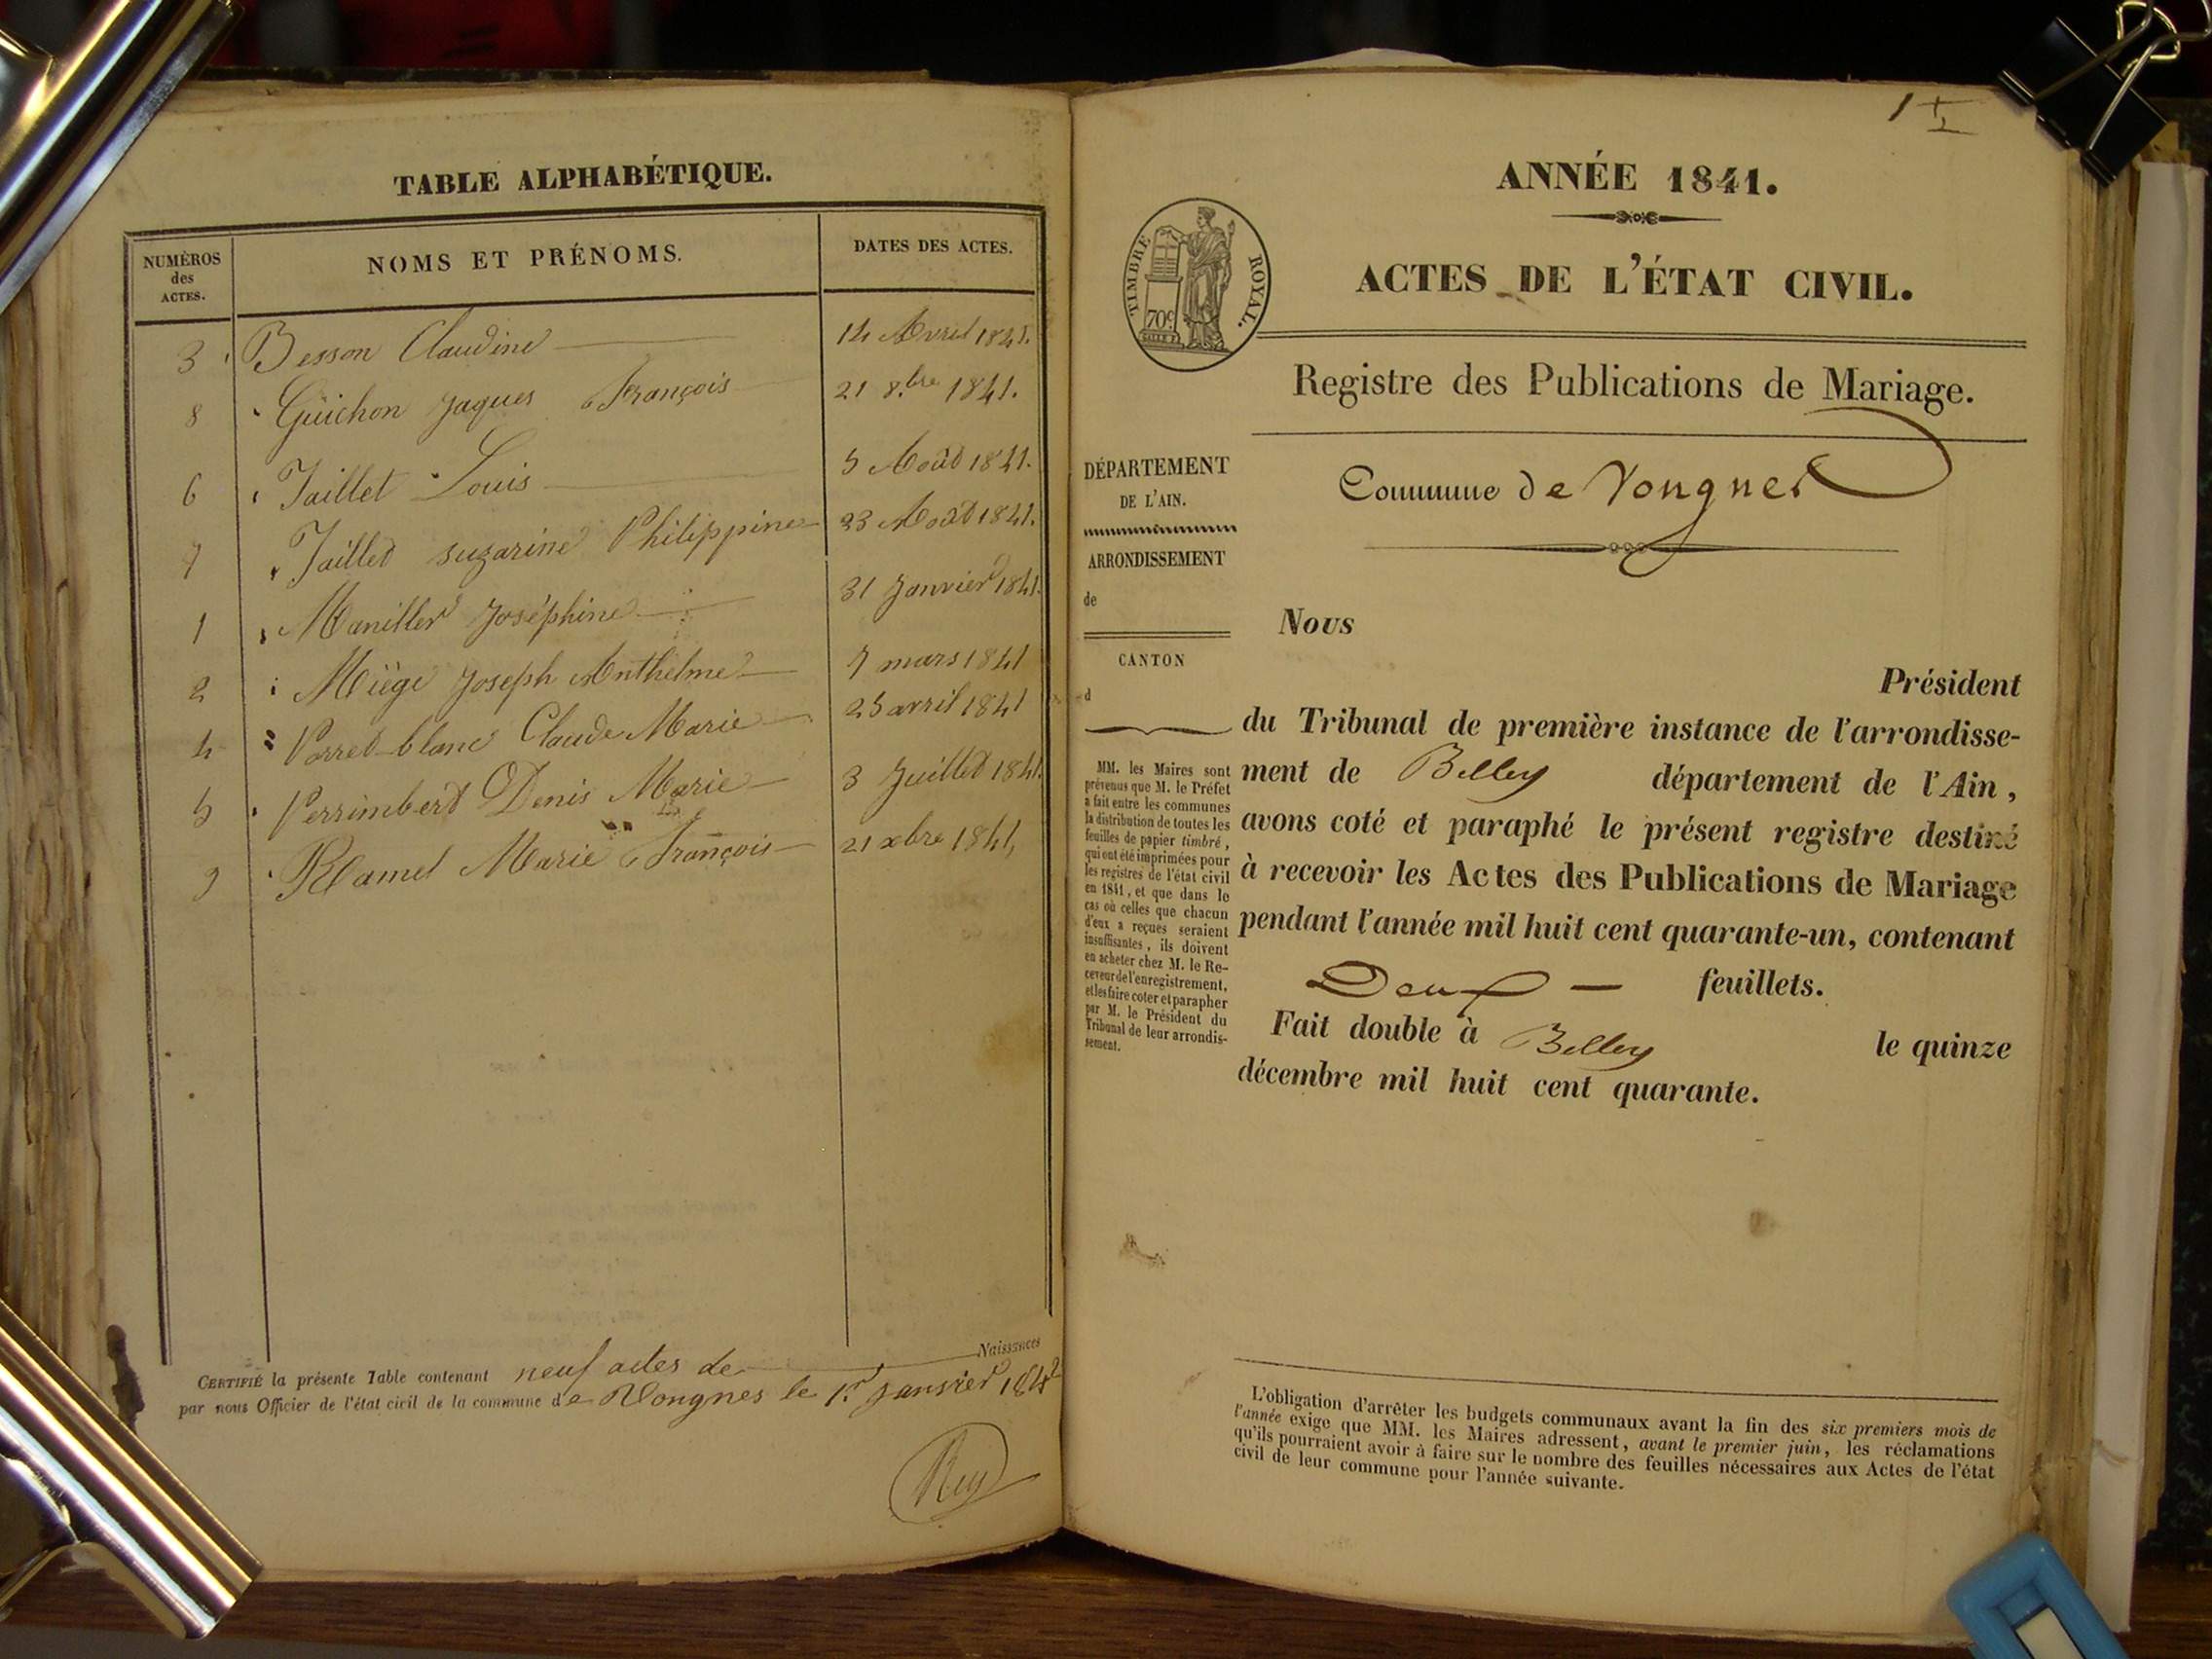 TABLE ALPHABÉTIQUE.
NUMÉROS
des
ACTES.
NOMS ET PRÉNOMS.
DATES DES ACTES.
3 Besson Claudine 14 Avril 1841.
8 Guichon Jaques François 21 8.bre 1841.
6 Jaillet Louis 5 Août 1841.
7 Jaillet suzarine Philippine 23 Août 1841.
1 Manillier Joséphine 31 Janvier 1841.
2 Miège Joseph Anthelme 7 mars 1841
4 Perret-blanc Claude Marie 25 avril 1841
5 Perrimbert Denis Marie 3 Juillet 1841.
9 Ramel Marie François 21 xbre 1841,
CERTIFIÉ la présente Table contenant neuf actes de Naissances
par nous Officier de l'état civil de la commune de Vongnes le 1.r Janvier 1842
Rey
1
ANNÉE 1841.
TIMBRE ROYAL.
70c
ACTES DE L'ÉTAT CIVIL.
Registre des Publications de Mariage.
Commune de Vongnes
DÉPARTEMENT
DE L'AIN.
ARRONDISSEMENT
de
CANTON
d
MM. les Maires sont
prévenus que M. le Préfet
a fait entre les communes
la distribution de toutes les
feuilles de papier timbré,
qui ont été imprimées pour
les registres de l'état civil
en 1841, et que dans le
cas où celles que chacun
d'eux a reçues seraient
insuffisantes, ils doivent
en acheter chez M. le Re-
ceveur de l'enregistrement,
et les faire coter et parapher
par M. le Président du
Tribunal de leur arrondis-
sement.
Nous
Président
du Tribunal de première instance de l'arrondisse-
ment de Belley département de l'Ain,
avons coté et paraphé le présent registre destiné
à recevoir les Actes des Publications de Mariage
pendant l'année mil huit cent quarante-un, contenant
Deux feuillets.
Fait double à Belley le quinze
décembre mil huit cent quarante.
L'obligation d'arrêter les budgets communaux avant la fin des six premiers mois de
l'année exige que MM. les Maires adressent, avant le premier juin, les réclamations
qu'ils pourraient avoir à faire sur le nombre des feuilles nécessaires aux Actes de l'état
civil de leur commune pour l'année suivante.